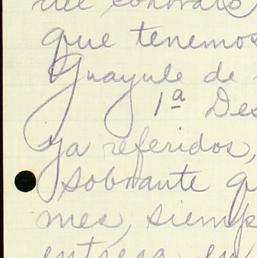 del contrato
que tenemos
Guayule de
1ª Des
ya referidos,
sobrante q
mes, siemp
entrega en